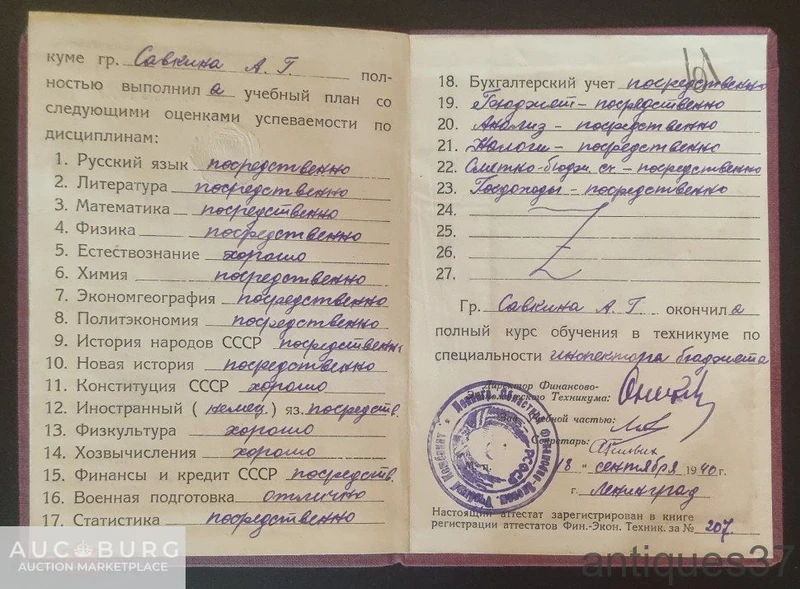 куме гр. Савкина А. Г. пол-
ностью выполнил а учебный план со
следующими оценками успеваемости по
дисциплинам:
1. Русский язык посредственно
2. Литература посредственно
3. Математика посредственно
4. Физика посредственно
5. Естествознание хорошо
6. Химия посредственно
7. Экономгеография посредственно
8. Политэкономия посредственно
9. История народов СССР посредственн
10. Новая история посредственно
11. Конституция СССР хорошо
12. Иностранный (немец.) яз. посредств.
13. Физкультура хорошо
14. Хозвычисления хорошо
15. Финансы и кредит СССР посредств.
16. Военная подготовка отлично
17. Статистика посредственно
18. Бухгалтерский учет посредственно
19. Бюджет - посредственно
20. Анализ - посредственно
21. Налоги - посредственно
22. Сметно-бюдж. сч. - посредственно
23. Госдоходы - посредственно
24.
25.
26.
27.
Гр. Савкина А. Г. окончил а
полный курс обучения в техникуме по
специальности инспектора бюджета
Директор Финансово-
Техникума:
учебной частью:
Секретарь:
18 " сентября 1940 г.
г. Ленинград
Настоящий аттестат зарегистрирован в книге
регистрации аттестатов Фин.-Экон. Техник. за № 207.
AUCBURG
AUCTION MARKETPLACE
antiques37